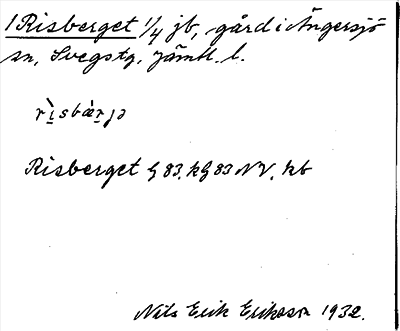 1 Risberget 1/4 jb, gård i Ängersjö
sn, Svegstg, Jämtl. l.
rìsbàrjə
Risberget G 83, kG 83 NV, kb
Nils Erik Eriksson 1932.